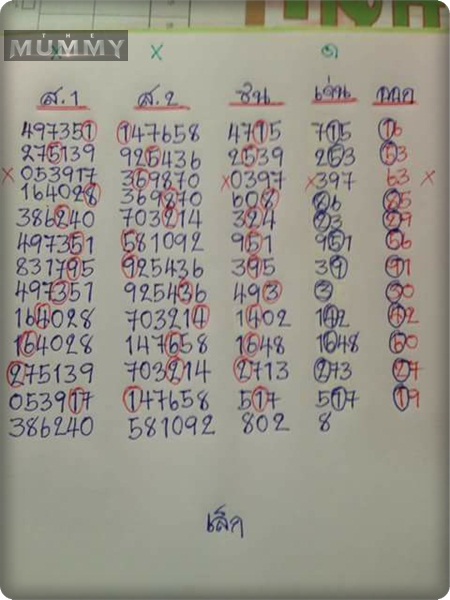 THE
MUMMY
x x ๑
ส.1 ส.2 ชน เจ่น ออก
497351 147658 4715 715 16
275139 925436 2539 253 53
x 053917 359870 x 0397 x 397 63 x
164028 369870 608 86 85
386240 703214 324 23 29
497351 581092 951 951 56
831795 925436 395 39 91
497351 925436 493 3 30
164028 703214 1402 142 42
164028 147658 1648 1648 60
275139 703214 2713 273 27
053917 147658 517 517 19
386240 581092 802 8
เล็ก